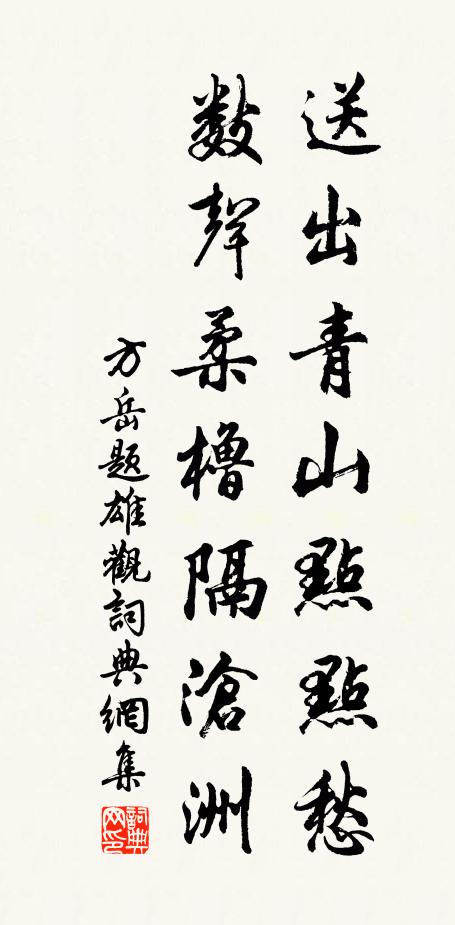 送出青山點點愁
數聲柔櫓隔滄洲
方岳題雄觀詞典網集
詞典网印